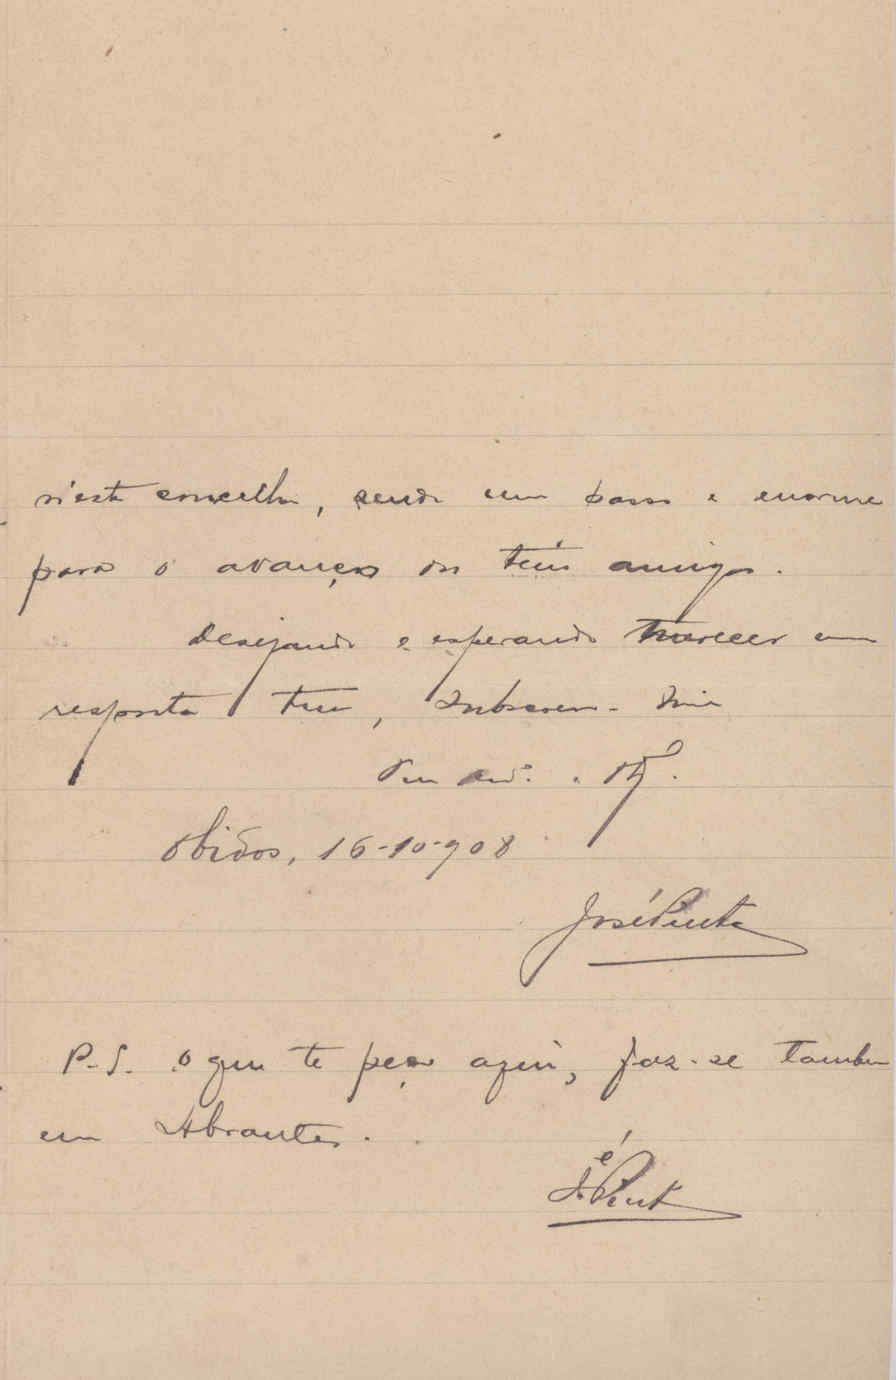 n'este concelho, sendo um passo e enorme
para o avanço dos teus amigos.
Desejando e esperando merecer uma
resposta tua, subscrevo-me
Obidos, 16-10-908
José Pinto
P.S. o que te peço aqui, faz-se tambem
em Abrantes.